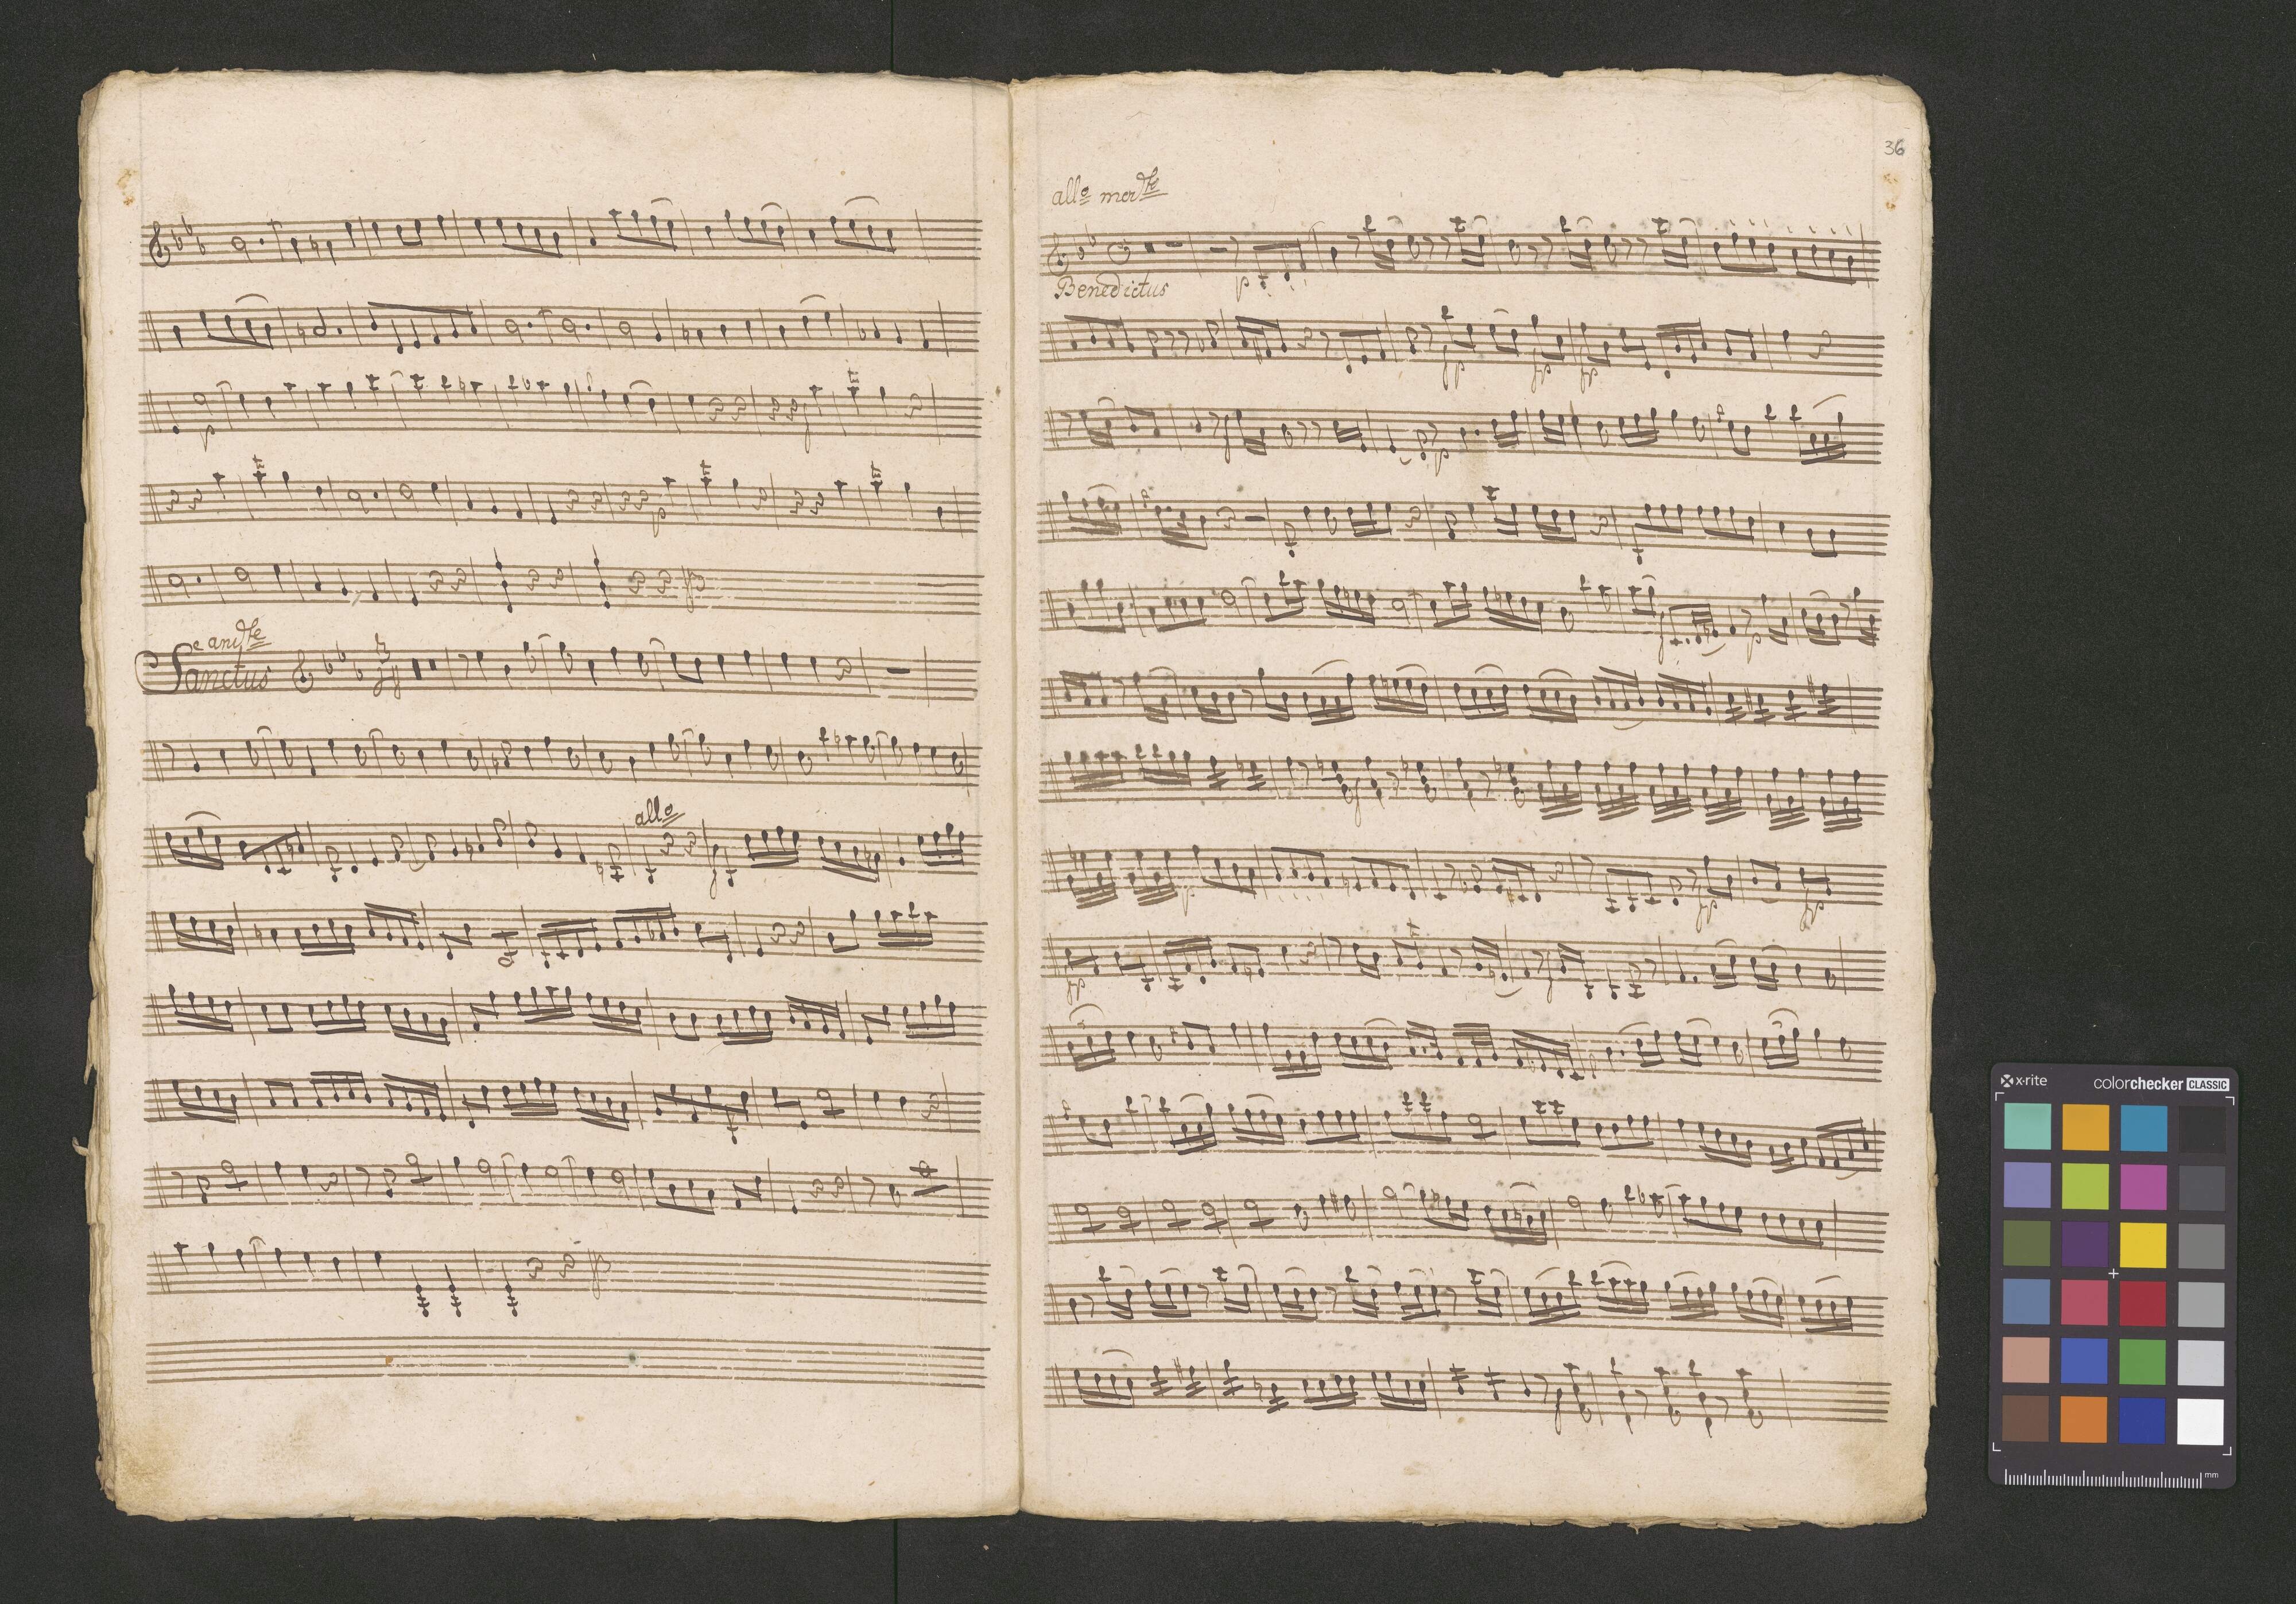 andte
Sanctus
allo
36
allo modte
Benedictus
p
x-rite
colorchecker CLASSIC
mm